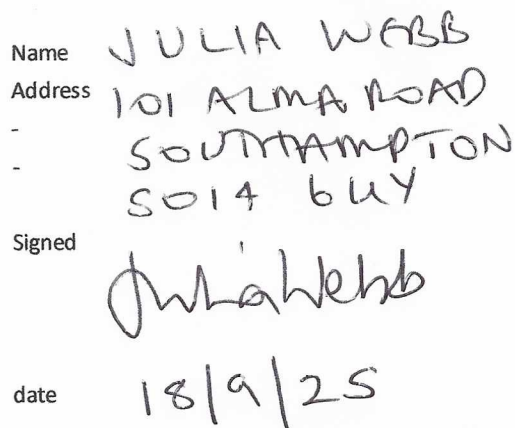 Name JULIA WEBB
Address 101 ALMA ROAD
- SOUTHAMPTON
- SO14 6UY
Signed Julia Webb
date 18/9/25